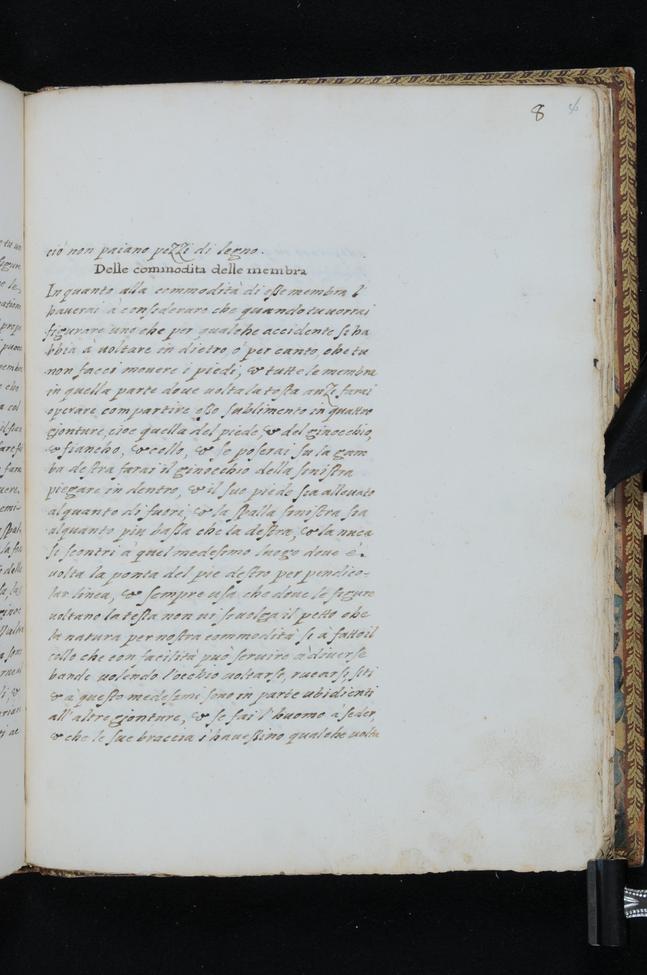 8 56
ció non paiano peZZi di legno.
Delle commodita delle membra
In quanto alla commodità di esse membra l'
haverai à consederare che quando tu vorrai
figurare uno che per qualche accidente si ha
bbia à voltare in dietro, ò per canto, che tu
non facci movere i piedi, & tutte le membra
in quella parte dove volta la testa anZi farai
operare, compartire esso sublimento in quattro
gionture, cioe quella del piede, & del ginocchio,
& fiancho, & collo, & se poserai su la gam
ba destra farai il ginocchio della sinistra
piegare in dentro, & il suo piede sia allevato
alquanto di fuori, & la spalla sinistra sia
alquanto piu bassa che la destra, & la nuca
si scontri à quel medesimo luogo dove è
volta la ponta del pie destro per pendico-
lar linea, & sempre usa che dove le figure
voltano la testa non vi si volga il petto che
la natura per nostra commodità si à fatto il
collo che con facisità può servire à diverse
bande volendo l'occhio voltarse, in siti
& à questo medesemi sono in parte ubidienti
all'altre gionture, & se fai l'huomo à seder,
& che le sue braccia s'havessino qualche volta